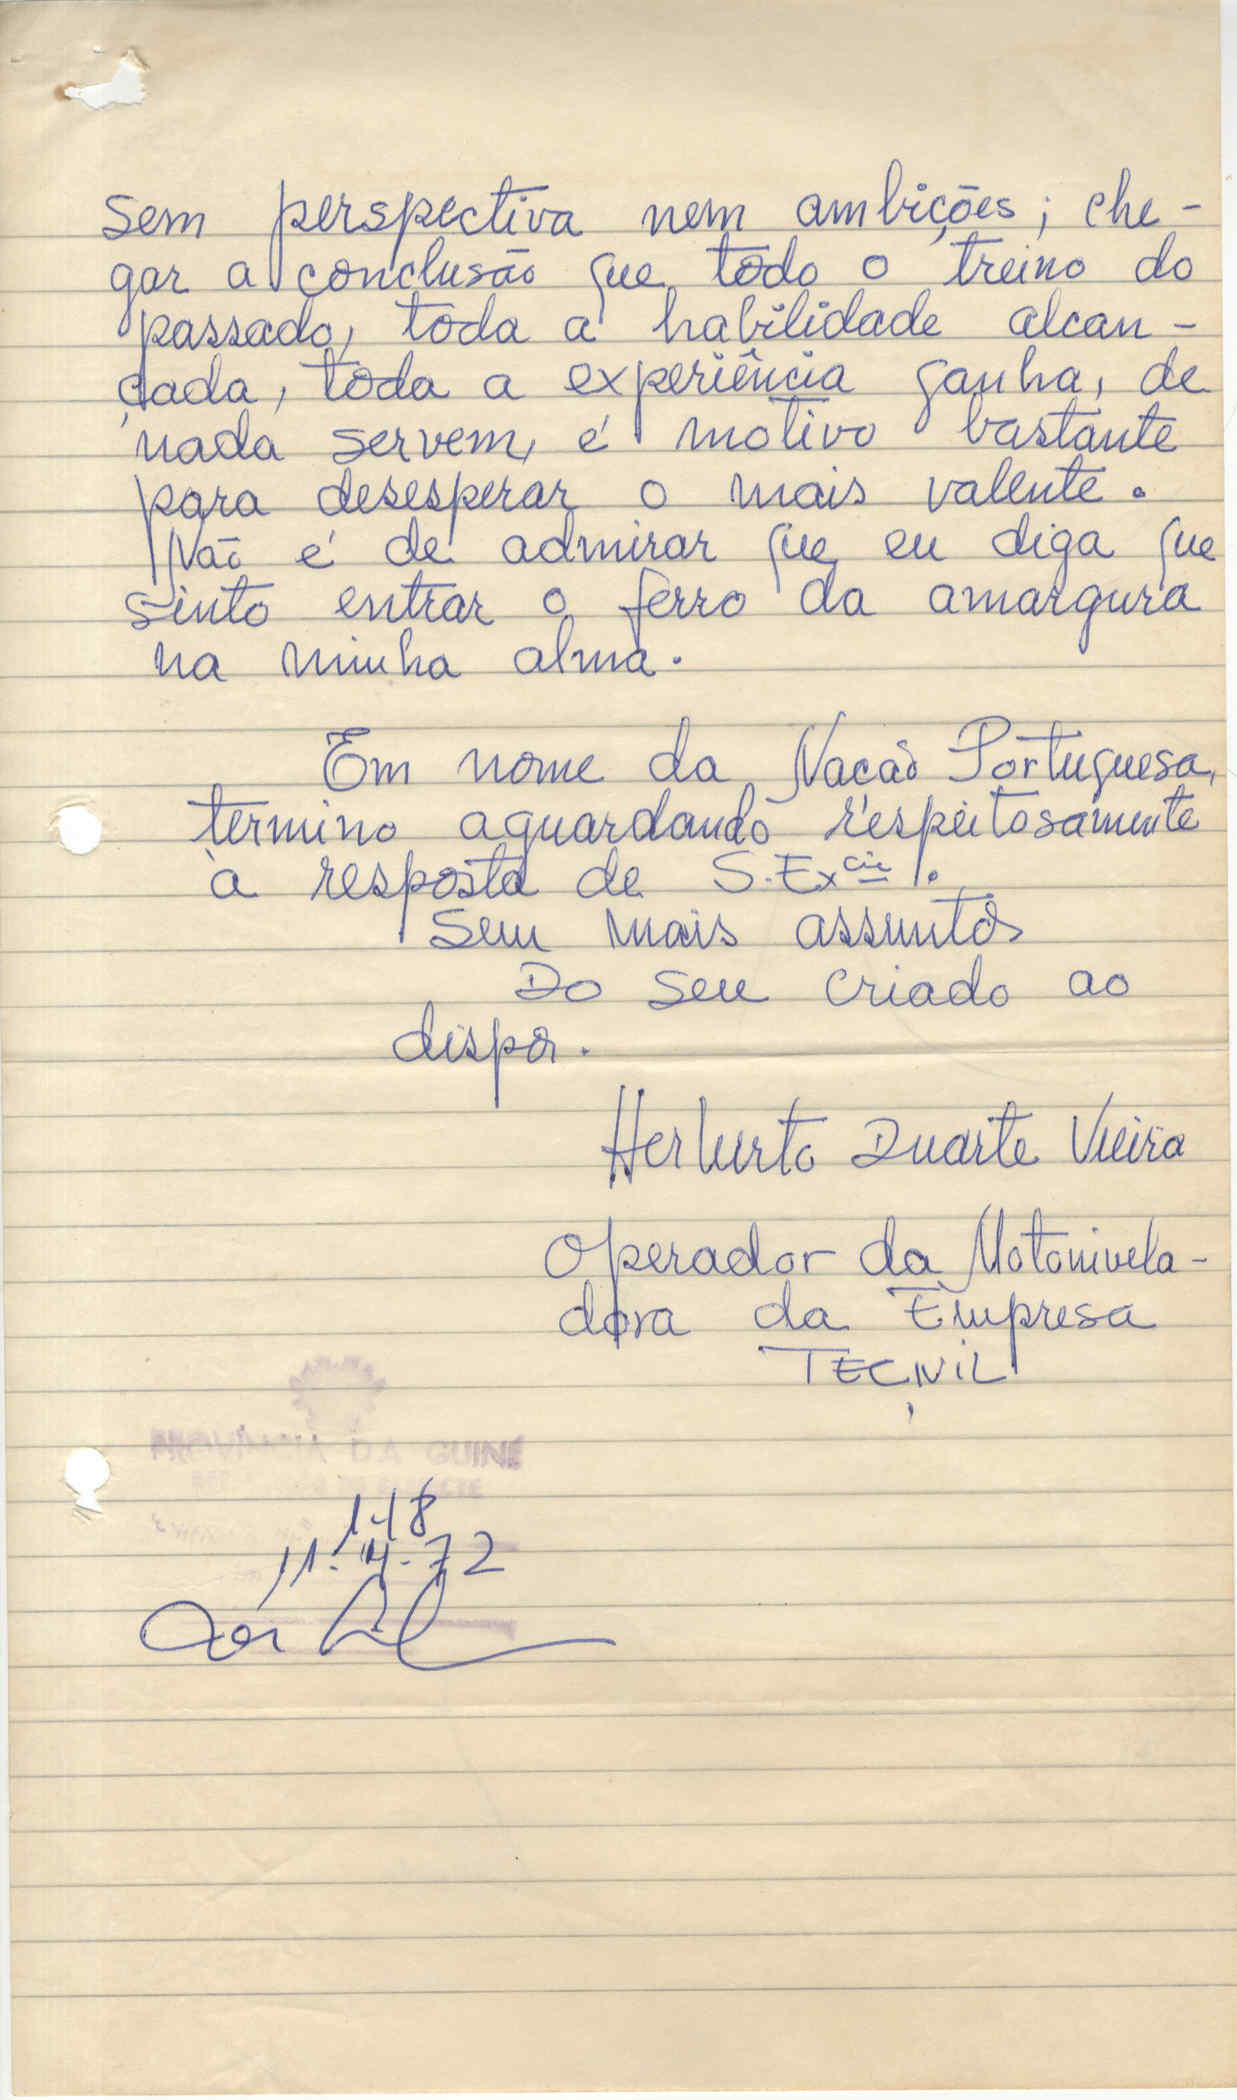 sem perspectiva nem ambições; che-
gar a conclusão que todo o treino do
passado, toda a habilidade alcan-
çada, toda a experiência ganha, de
nada servem, é motivo bastante
para desesperar o mais valente.
Não é de admirar que eu diga que
sinto entrar o ferro da amargura
na minha alma.
Em nome da Nacão Portuguesa,
termino aguardando respeitosamente
a resposta de S. Excia.
Sem mais assuntos
Do seu criado ao
dispor.
Herberto Duarte Vieira
Operador da Motonivela-
dora da Empresa
TECNIL
PROVÍNCIA DA GUINÉ
148
72